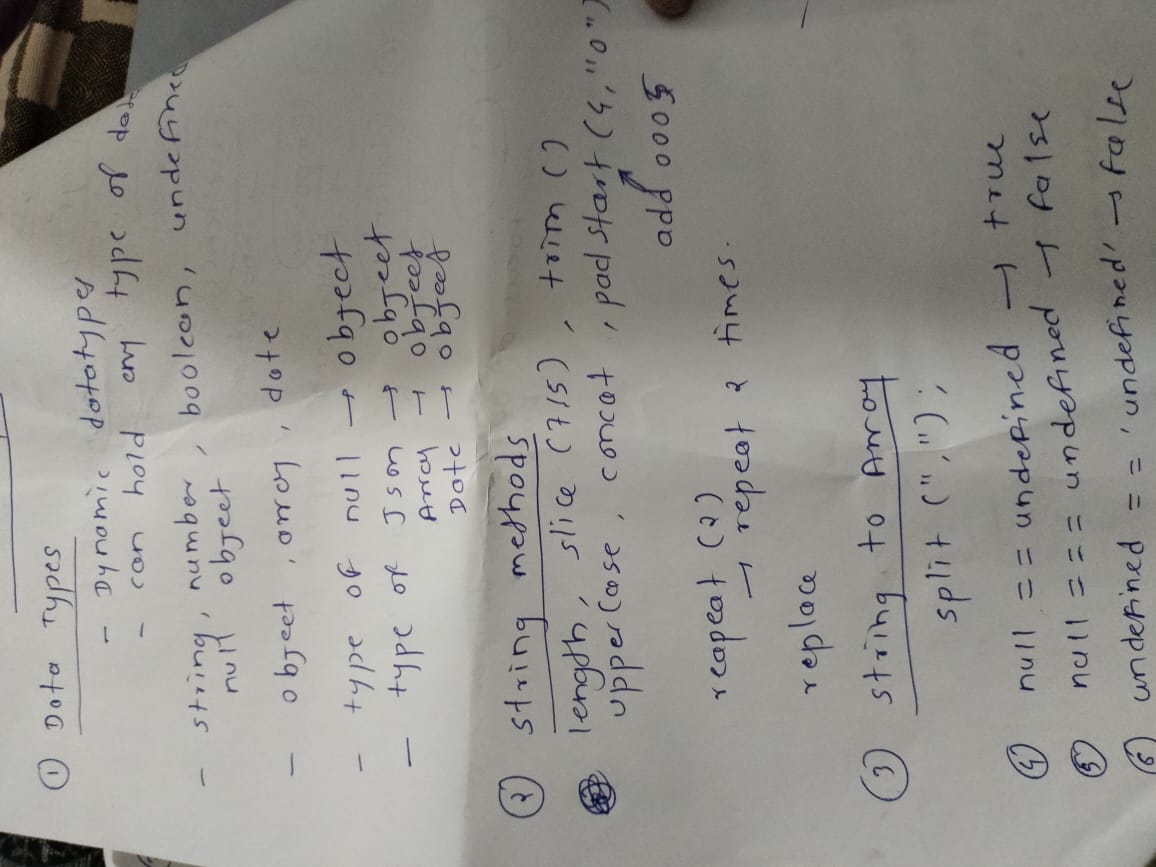 ① Data Types
- Dynamic datatypes
- can hold any type of data
- string, number, boolean, undefined
null, object
- object, array, date
- type of null → object
- type of Json → object
Array → object
Date → object
② string methods
length, slice (7,15), trim ()
uppercase, concat, padstart (4,"0")
add 0005
reapeat (2)
→ repeat 2 times.
replace
③ string to Array
split (",");
④ null == undefined → true
⑤ null === undefined → false
⑥ undefined == 'undefined' → false